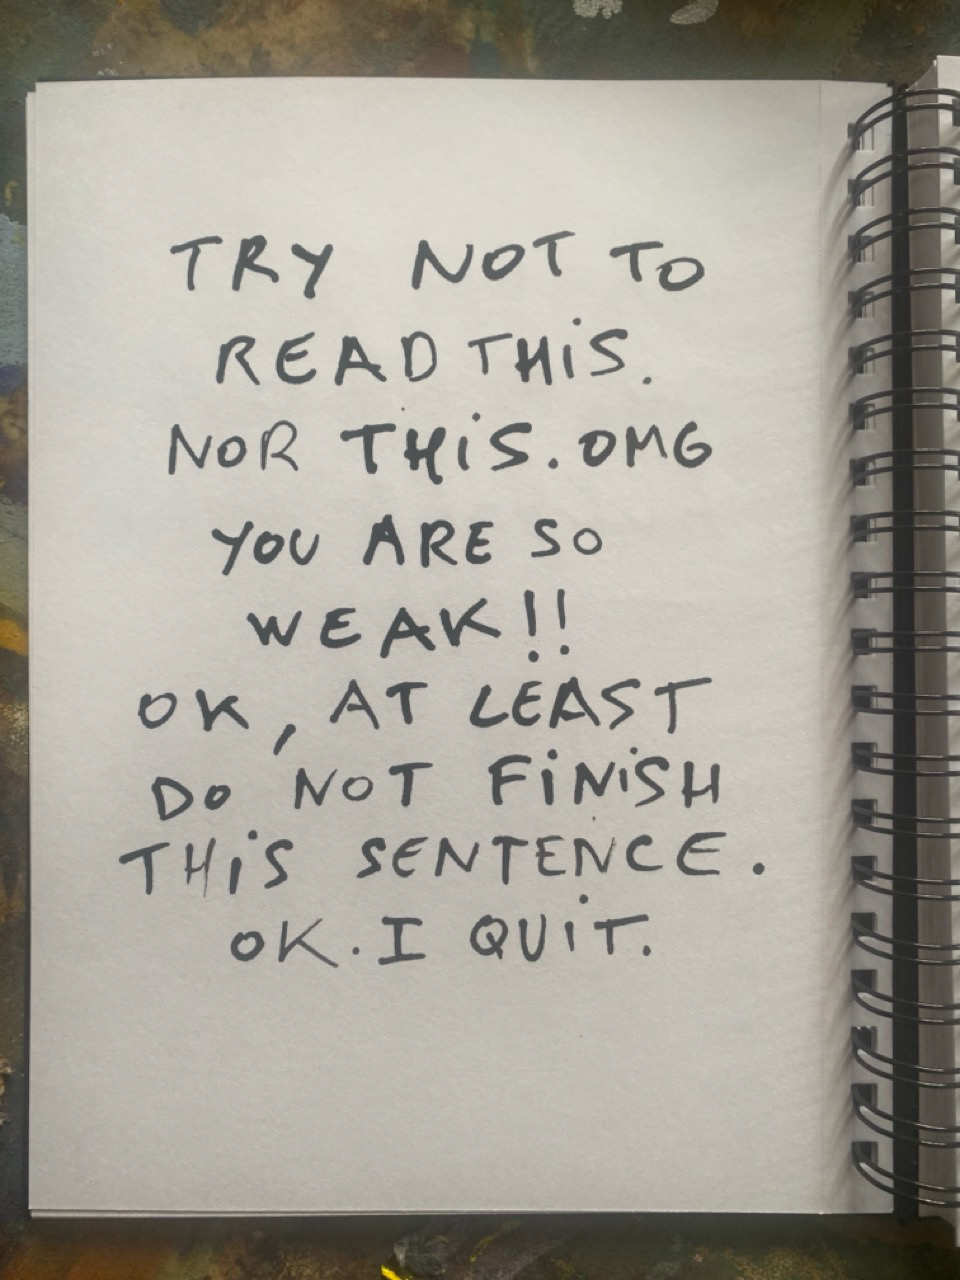 TRY NOT TO
READ THIS.
NOR THIS. OMG
YOU ARE SO
WEAK!!
OK, AT LEAST
DO NOT FINISH
THIS SENTENCE.
OK. I QUIT.